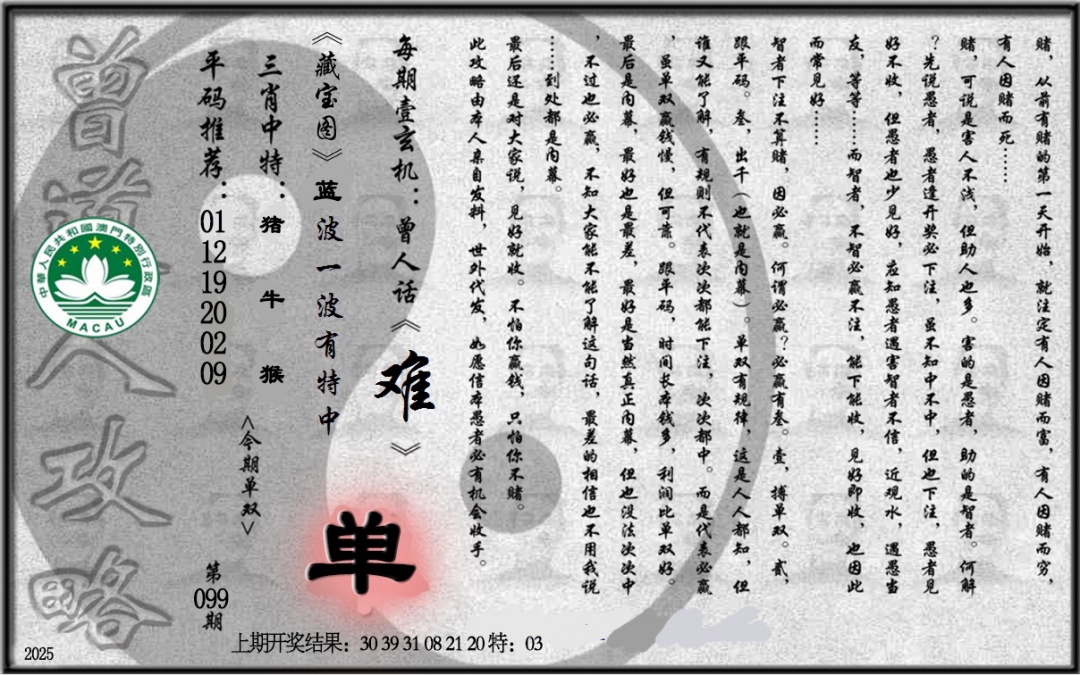 赌，从前有赌的第一天开始，就注定有人因赌而富，有人因赌而穷，
有人因赌而死……
赌，可说是害人不浅，但助人也多。害的是愚者，助的是智者。何解
？先说愚者，愚者逢开奖必下注，虽不知中不中，但也下注，愚者见
好不收，但愚者也少见好，应知愚者遇害智者不信，近观水，遇愚当
友，等等……而智者，不智必赢不注，能下能收，见好即收，也因此
而常见好……
智者下注不算赌，因必赢。何谓必赢？必赢有叁。壹，搏单双。贰，
跟平码。叁，出千（也就是内幕）。单双有规律，这是人人都知，但
谁又能了解，有规则不代表次次都能下注，次次都中。而是代表必赢
，虽单双赢钱慢，但可靠。跟平码，时间长本钱多，利润比单双好。
最后是内幕，最好也是最差，最好是当然真正内幕，但也没法次次中
，不过也必赢，不知大家能不能了解这句话，最差的相信也不用我说
……到处都是内幕。
最后还是对大家说，见好就收。不怕你赢钱，只怕你不赌。
此攻略由本人亲自发料，世外代发，如愿信本愚者必有机会收手。
每期壹玄机：曾人话《难》
《藏宝图》蓝波一波有特中
三肖中特：猪 牛 猴
平码推荐：01 12 19 20 02 09
<今期单双>
单
第099期
曾道人攻略
中華人民共和國澳門特別行政區
MACAU
上期开奖结果：30 39 31 08 21 20 特：03
2025